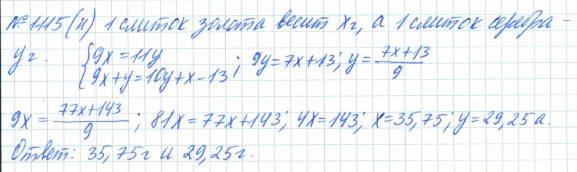 №1115(н) 1 слиток золота весит xг, а 1 слиток серебра -
yг. {9x=11y
9x+y=10y+x-13; 9y=7x+13; y=7x+13/9
9x=77x+143/9; 81x=77x+143; 4x=143; x=35,75; y=29,25г.
Ответ: 35,75г и 29,25г.